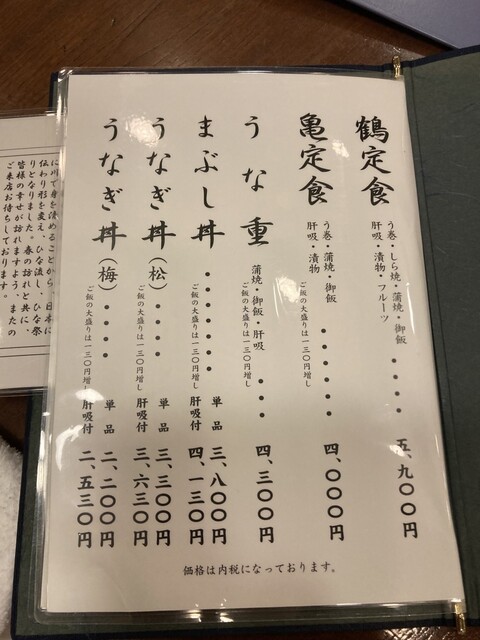 鶴定食
う巻・しら焼・蒲焼・御飯
肝吸・漬物・フルーツ
五、九〇〇円
亀定食
う巻・蒲焼・御飯
肝吸・漬物
ご飯の大盛りは一三〇円増し
四、〇〇〇円
うな重
蒲焼・御飯・肝吸
ご飯の大盛りは一三〇円増し
四、三〇〇円
まぶし丼
ご飯の大盛りは一三〇円増し
単品 三、八〇〇円
肝吸付 四、一三〇円
うなぎ丼(松)
ご飯の大盛りは一三〇円増し
単品 三、三〇〇円
肝吸付 三、六三〇円
うなぎ丼(梅)
ご飯の大盛りは一三〇円増し
単品 二、二〇〇円
肝吸付 二、五三〇円
価格は内税になっております。
に川で身を清めることから、日本に
伝わり形を変え、ひな流し、ひな祭
りとなりました。春の訪れと共に、
皆様の幸せが訪れますよう、またの
ご来店お待ちしております。